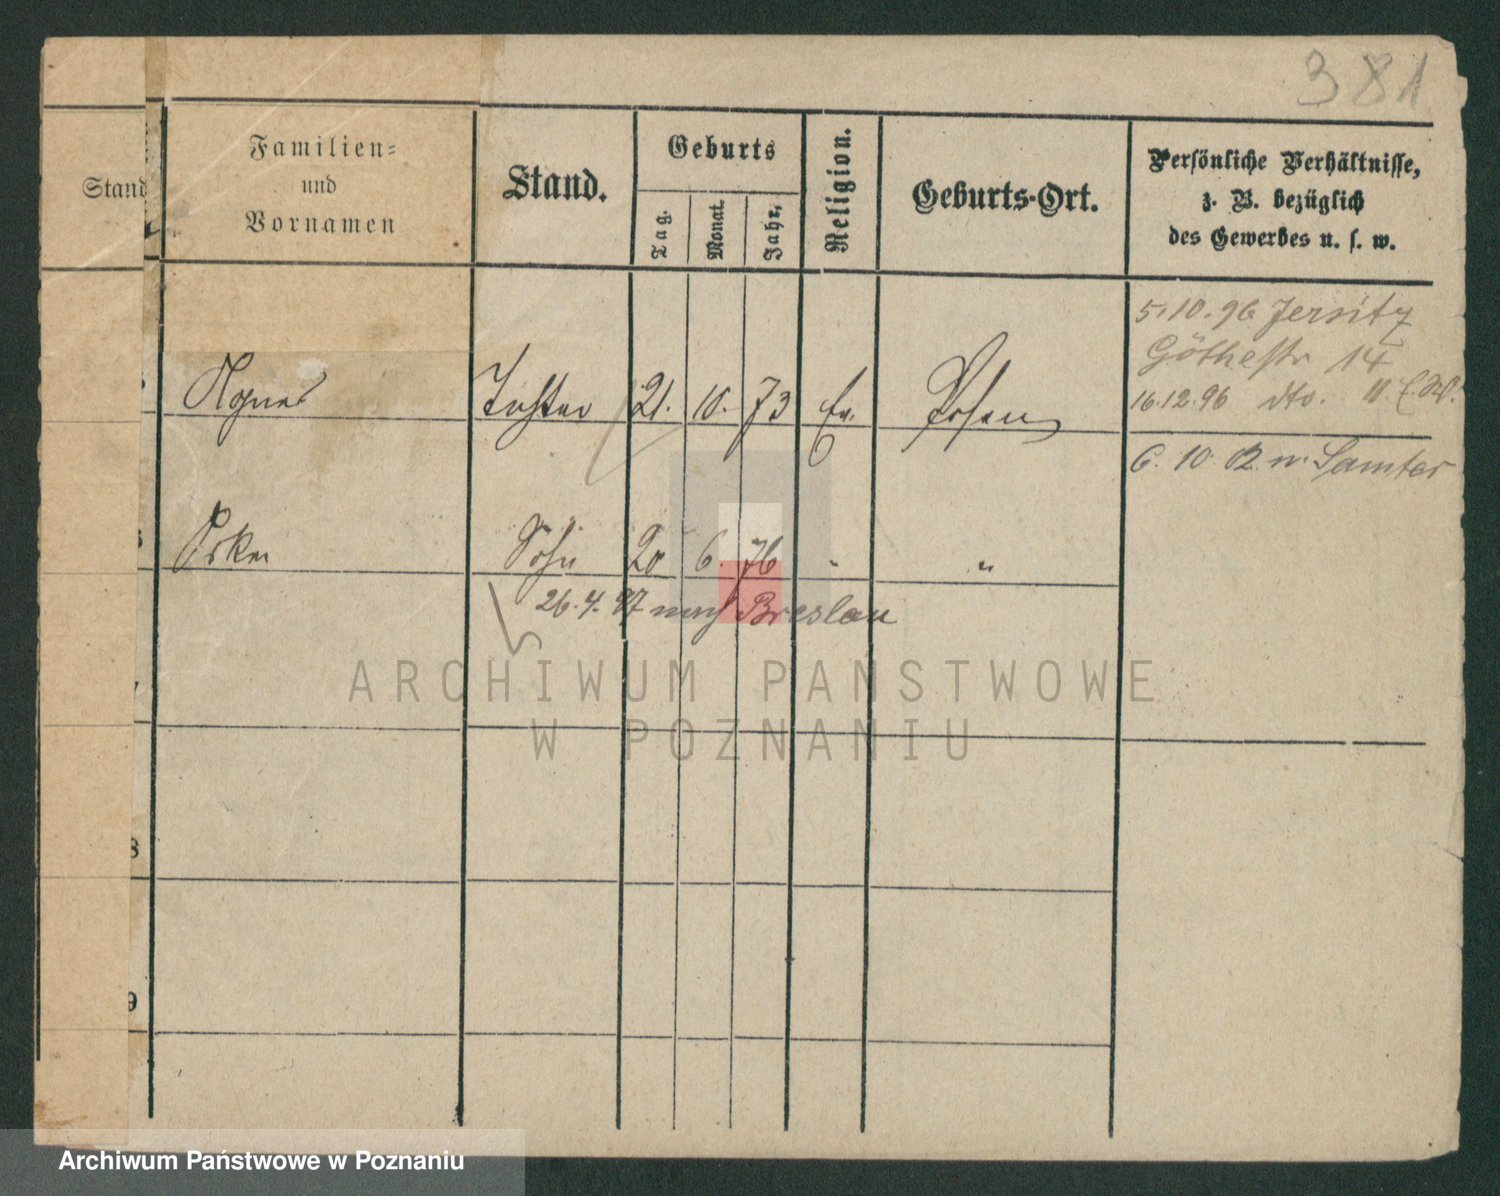 381
Stand
Familien-
und
Vornamen
Stand.
Geburts
Tag.
Monat.
Jahr.
Religion.
Geburts-Ort.
Persönliche Verhältnisse,
z. B. bezüglich
des Gewerbes u. s. w.
5.10.96 Jersitz
Göthestr 14
Agnes Tochter 21. 10. 73 Ev. Posen
16.12.96 dto. 11.
6. 10. 02. n. Samter
Oskar Sohn 20 6. 76 " "
26.4.97 nach Breslau
ARCHIWUM PAŃSTWOWE
W POZNANIU
8
9
Archiwum Państwowe w Poznaniu